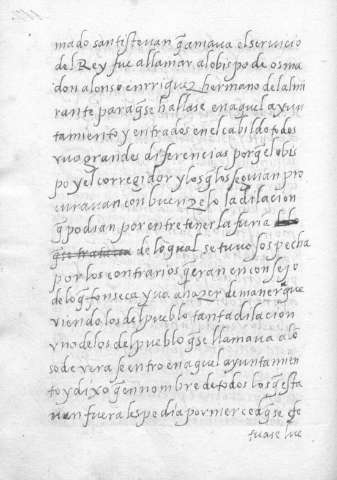 mado santistevan q̃ amava el servicio
del Rey fue a llamar al obispo de osma
don alonso enrriquez hermano del almi
rante para q̃ se hallase en aquel ayun
tamiento y entrados en el cabildo todos
vuo grandes diferencias porq̃ el obis
po y el corregidor y los q̃ los seguian pro
curavan con buen zelo la dilacion
q̃ podian por entretener la furia
q̃ se tratava de lo qual se tuvo sospecha
por los contrarios q̃ eran en consejo
de lo q̃ fonseca yva a hazer de manera que
viendo los del pueblo tanta dilacion
vno de los del pueblo q̃ se llamava alo
so de vera se entro en aquel ayuntamien
to y dixo q̃ en nombre de todos los q̃ esta
uan fuera les pedia por merced q̃ se efe
tuase lue